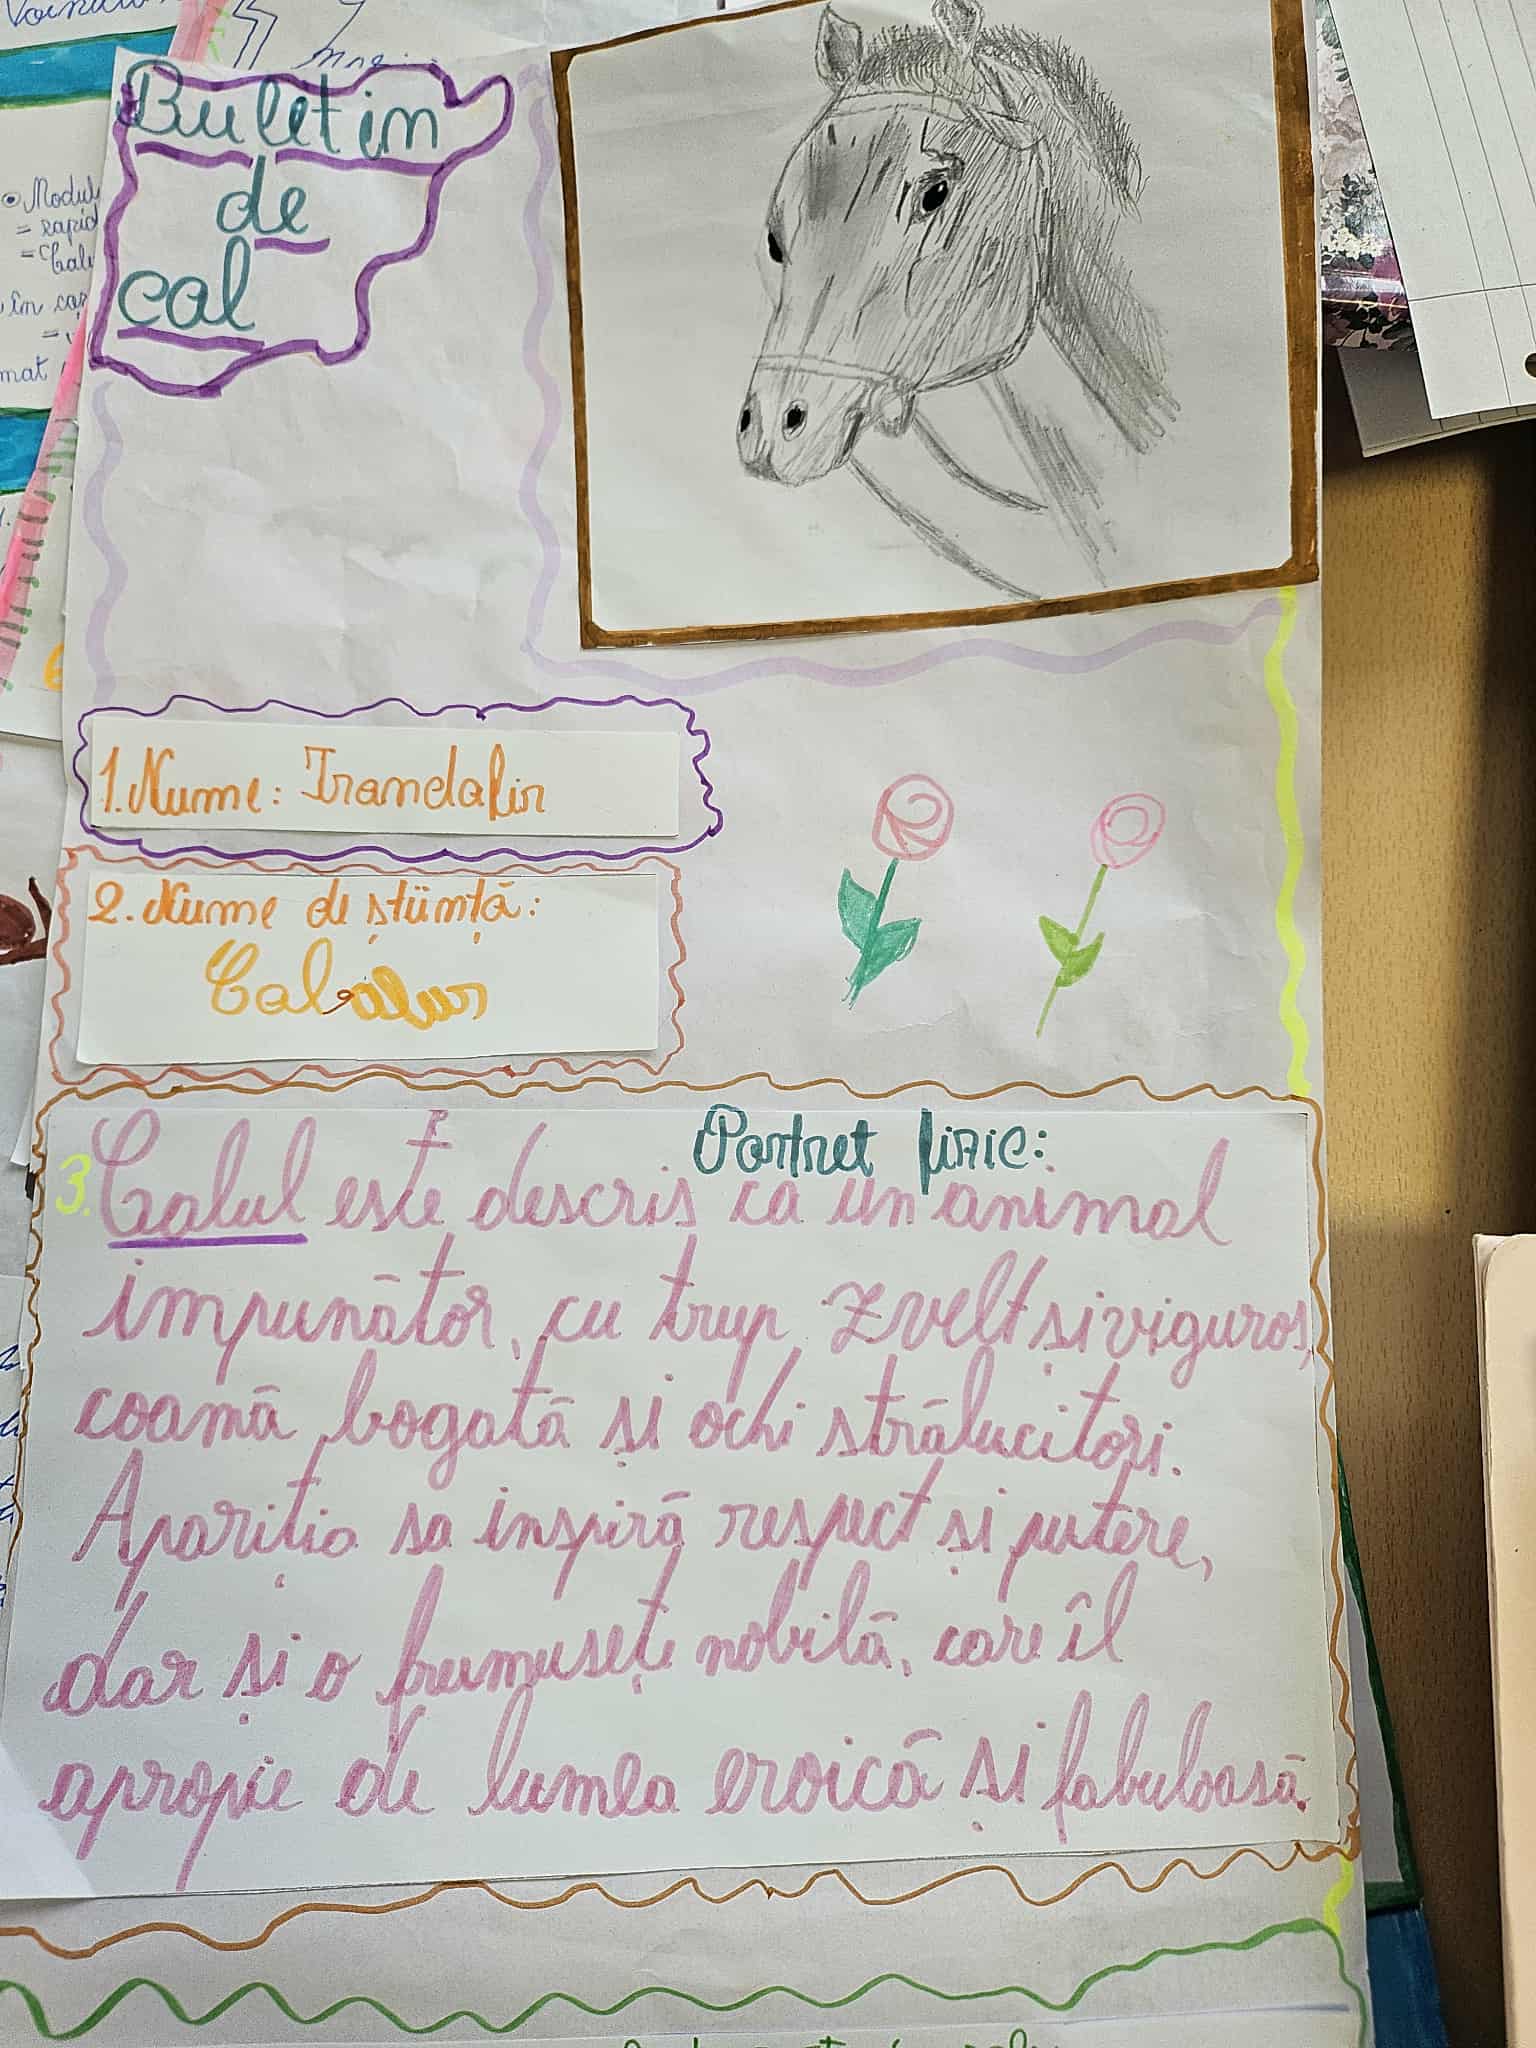 Buletin
de
cal
Modul
= rapid
1. Nume: Trandafir
2. Nume de știință:
Portret fizic:
3. Calul este descris ca un animal
impunător, cu trup zvelt și viguros,
coamă bogată și ochi strălucitori.
Apariția sa inspiră respect și putere,
dar și o frumusețe nobilă, care îl
apropie de lumea eroică și fabuloasă.